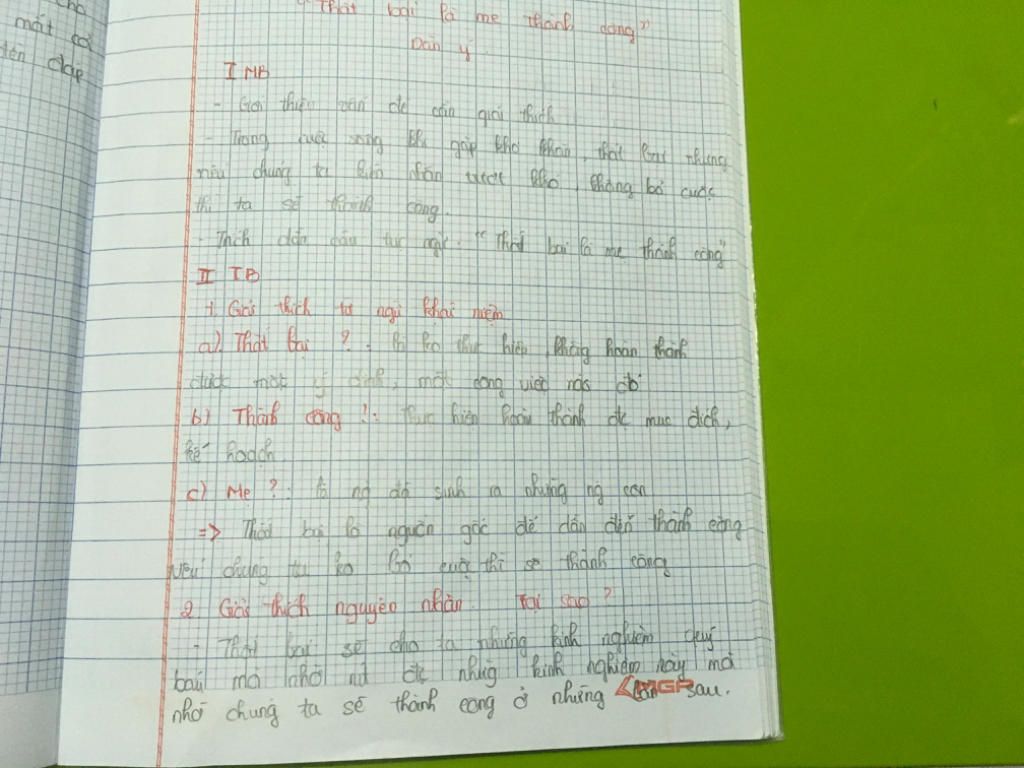 mất cả
đền đáp
"Thất bại là mẹ thành công"
Dàn ý
I MB
- Giới thiệu vấn đề cần giải thích
- Trong cuộc sống khi gặp khó khăn, thất bại nhưng
nếu chúng ta kiên nhẫn vượt khó, không bỏ cuộc
thì ta sẽ thành công.
- Trích dẫn câu tục ngữ: "Thất bại là mẹ thành công"
II TB
1. Giải thích từ ngữ khái niệm
a) Thất bại ?: là ko thực hiện, không hoàn thành
được một ý định, một công việc nào đó
b) Thành công ?: Thực hiện hoàn thành đc mục đích,
kế hoạch
c) Mẹ ?: là ng đã sinh ra những ng con
=> Thất bại là nguồn gốc để dẫn đến thành công
nếu chúng ta ko bỏ cuộc thì sẽ thành công
2. Giải thích nguyên nhân Tại sao ?
- Thất bại sẽ cho ta những kinh nghiệm quý
báu mà nhờ nó đc những kinh nghiệm này mà
nhờ chúng ta sẽ thành công ở những lần sau.